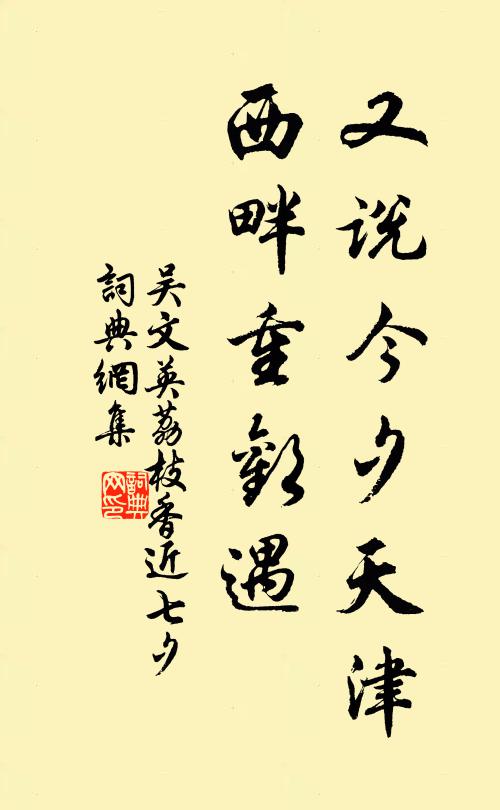 又說今夕天津
西畔重歡遇
吴文英荔枝香近七夕
詞典網集
詞典
网印